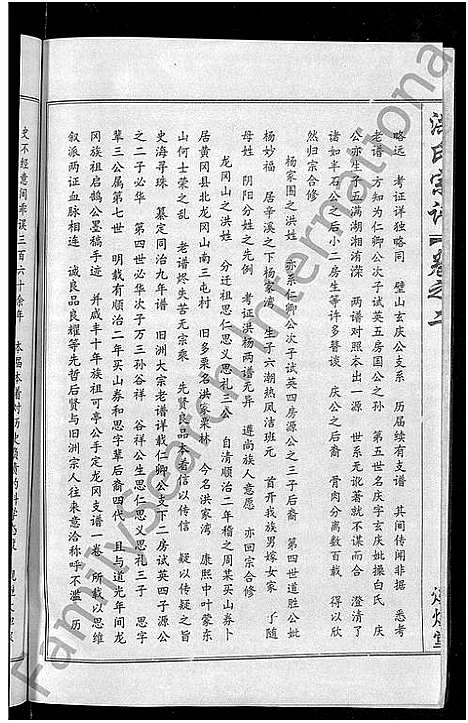 洪氏宗谱 卷之二
燉煌堂
略远 考证详独略同 璧山玄庆公支系 历届续有支谱 其间传闻非据 悉考
老谱 方知为仁卿公次子试英五房国公之孙 第五世名庆字玄庆妣操白氏 庆
公亦生子五满湖湘洧深 两谱对照本出一源 世系无讹著就不谋而合 澄清了
诸如半石公之后小二房生等许多替误 庆公之后裔 骨肉分离数百载 得以欣
然归宗合修
杨家围之洪姓 亦系仁卿公次子试英四房源公之三子后裔 第四世道胜公妣
杨妙福 居辛溪之下杨家湾 生子六潮热凤洁班元 首开我族男嫁女家 了随
母姓 阴阳分姓之先例 考证洪杨两谱无异 遵尚族人意愿 亦回宗合修
龙冈山之洪姓 分迁祖思仁思义思礼三公 自清顺治二年稽之周某买山券卜
居黄冈县北龙冈山南三屯村 旧多栗名洪家栗林 今名洪家湾 康熙中叶蒙东
山何士荣之乱 老谱烬失苦无宗乘 先贤良品本着信以传信 疑以传疑之旨
史海寻珠 纂定同治九年谱 旧洲大宗老谱详载仁卿公支下二房试英四子源公
之二子必华 第四世必华次子万三孙谷祥 谷祥公生思仁思义思礼三子 思字
辈三公属第七世 明载有顺治二年买山券和思字辈后裔四代 且与道光年间龙
冈族祖启鹄公墨稿手迹 并咸丰十年族祖可亭公手定龙冈支谱一卷 所载以思维
叙派两证血脉相连 诚良品良耀等先哲后贤与旧洲宗人往来意洽称呼不滥 历
史不经意间乖误三百六十余年 本届本着对历史负责的科学态度